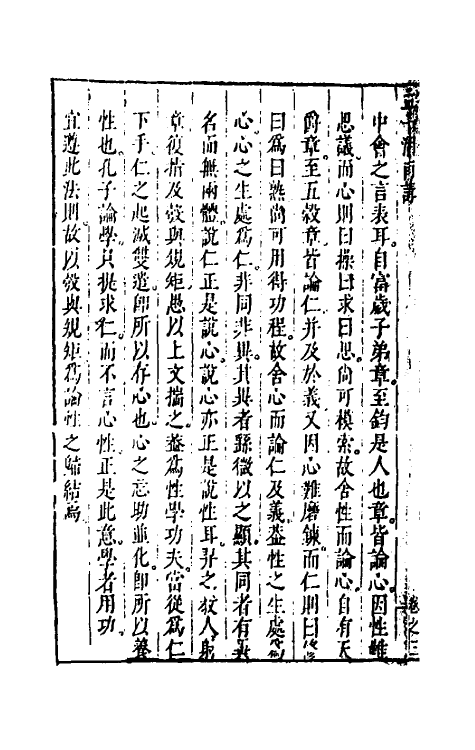 中會之言表耳自富歲子弟章至鈞是人也章皆論心因性難
思議而心則曰操曰求曰思尚可模索故舍性而論心自有天
爵章至五穀章皆論仁并及於義又因心難磨鍊而仁則曰
曰爲曰熟尚可用得功程故舍心而論仁及義葢性之生處
心心之生處爲仁非同非異其異者繇微以之顯其同者有
名而無兩體說仁正是說心說心亦正是說性耳羿之敎人射
章復指及彀與規矩愚以上文揣之葢爲性學功夫當從爲仁
下手仁之起滅雙遣卽所以存心也心之忘助並化卽所以養
性也孔子論學只提求仁而不言心性正是此意學者用功
宜遵此法則故以彀與規矩爲論性之歸結焉
卷之三